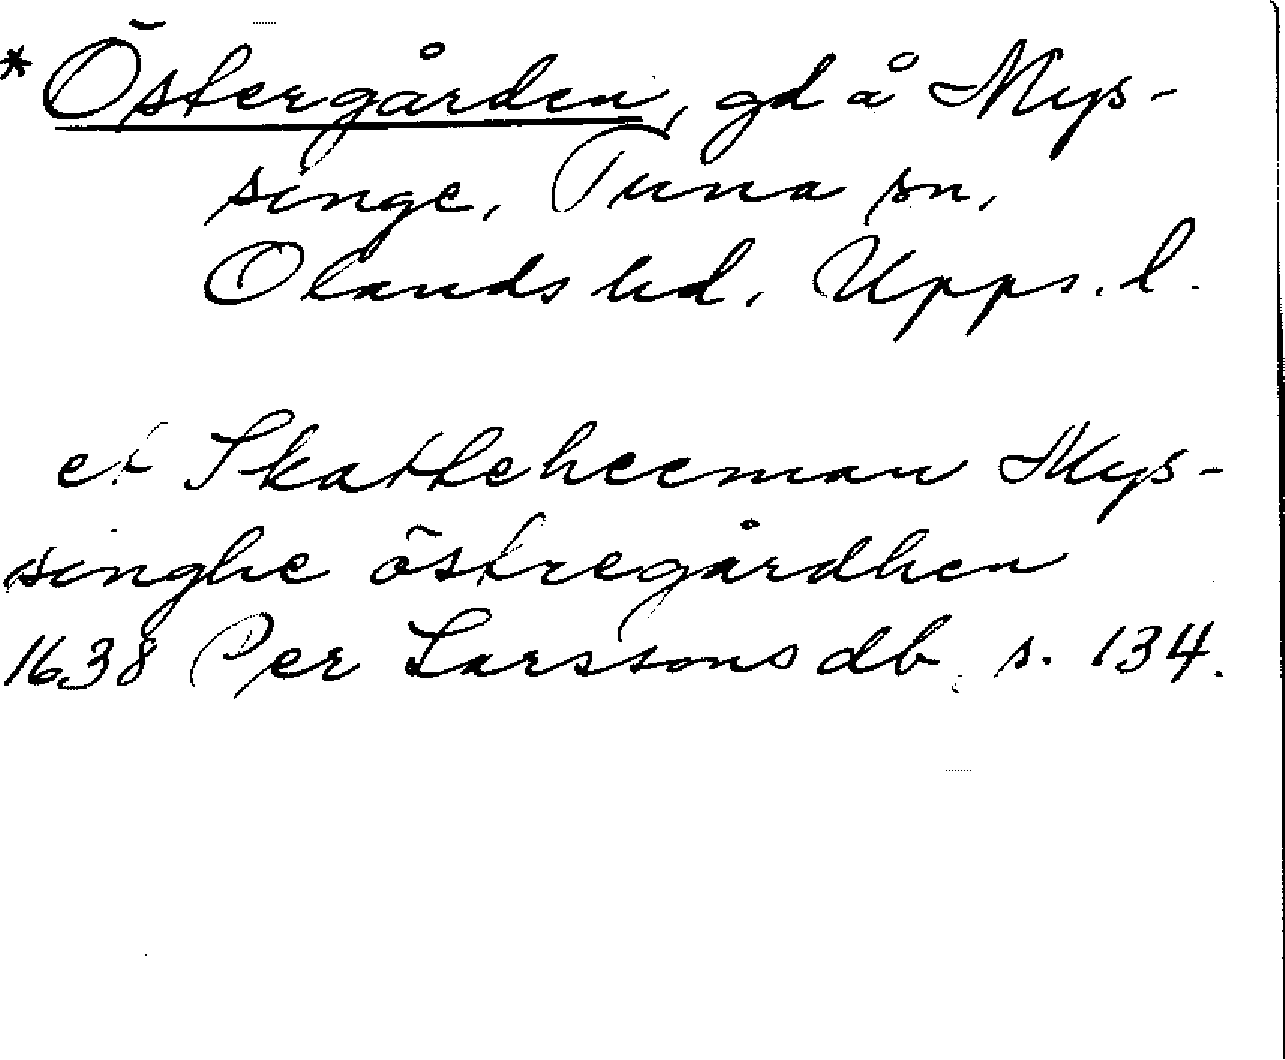 *Östergården, gd å Mys-
singe, Tuna sn,
Olands hd, Upps. l.
et Skatteheeman Mys-
singhe östregårdhen
1638 Per Larssons db s. 134.